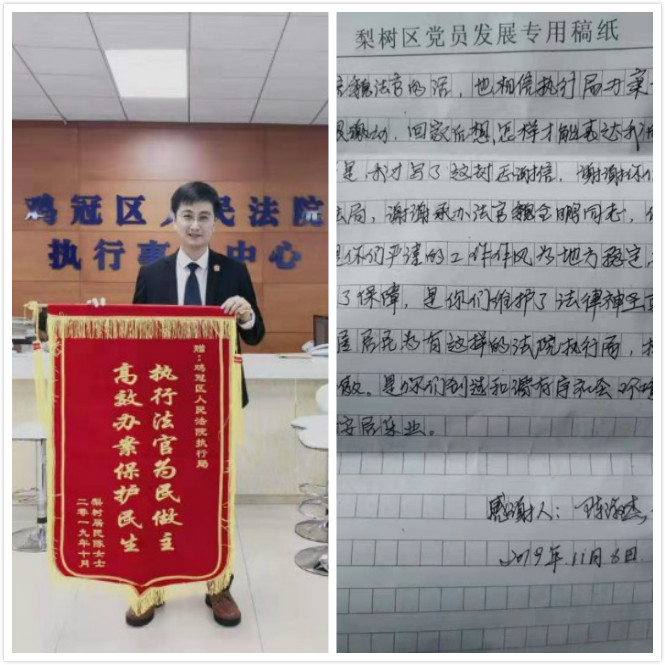 鸡冠区人民法院
执行事 中心
赠：鸡冠区人民法院执行局
执行法官为民做主
高效办案保护民生
梨树居民陈女士
二零一九年十月
梨树区党员发展专用稿纸
法官的话，也相信执行局办案
激动，回家后想，怎样才能表达我
是我才写了这封感谢信，谢谢你们
局，谢谢承办法官魏 鹏同志，
你们严谨的工作作风为地方稳定
了保障，是你们维护了法律神圣
居民为有这样的法院执行局，
是你们创造和谐有序社会环境
安居乐业。
感谢人：陈 杰
2019年11月6日